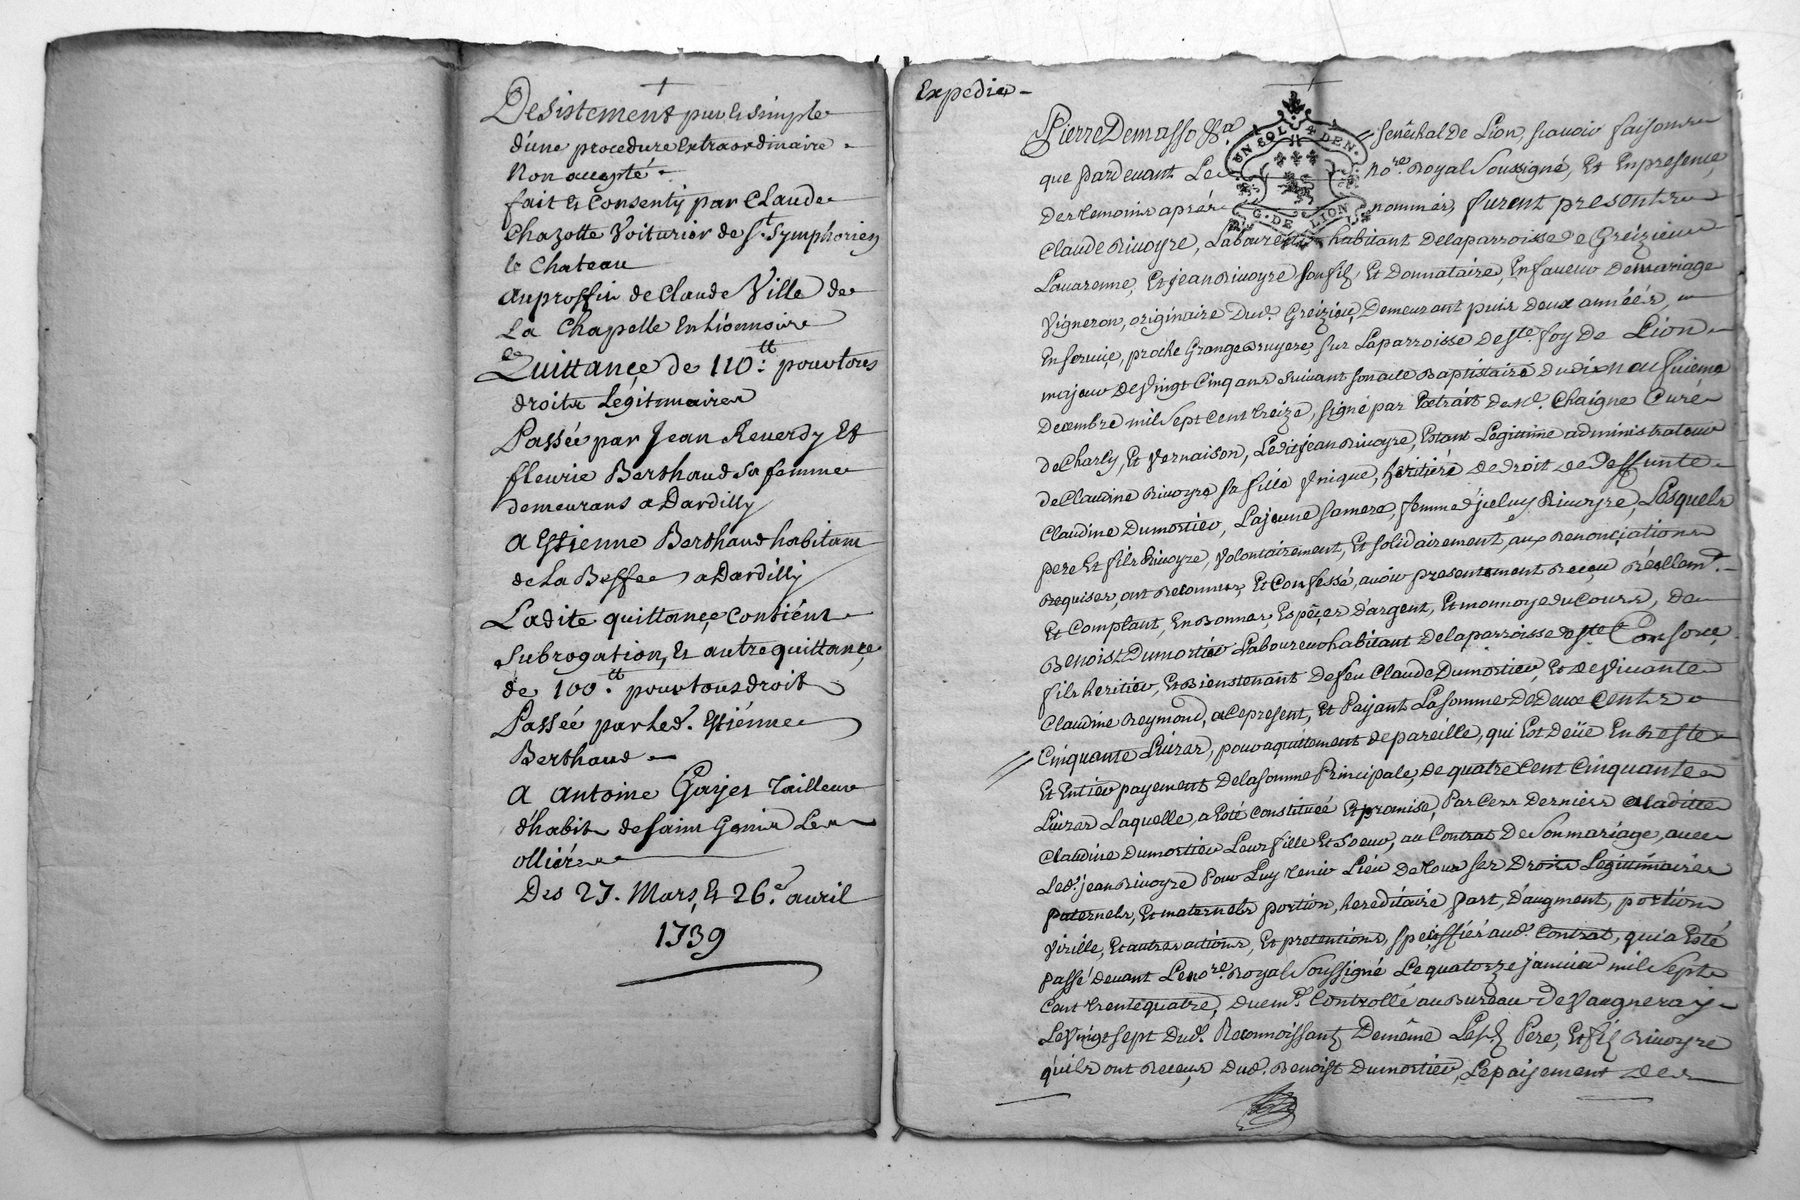 Desistement pur & simple
d'une procedure extraordinaire
Non accepté
fait & Consenty par Claude
Chazotte Voiturier de st. Symphorien
le Chateau
Au proffit de Claude Ville de
La Chapelle en Lionnoire
Quittançe de 110.tt pour tous
droits Legitimaires
Passée par Jean Reverdy Et
fleurie Berthaud sa femme
demeurans a Dardilly
A Estienne Berthaud habitant
de La Beffee a Dardilly
Ladite quittançe Contient
Subrogation, & autre quittançe
de 100.tt pour tous droits
Passée par led. Estiénne
Berthaud
A antoine Gayet Tailleur
d'habit de saint Genis Les
olliéres
Des 27. Mars, & 26e. avril
1739
Expedié
EN SOL DEN.
G. DE LION
Pierre Demasso &a. Senéchal de Lion, scavoir faisons
que pardevant Le no.re Royal Soussigné, Et En presençe
Des temoins aprés nommés, furent presents
Claude Rivoyre, Laboureur habitant de la parroisse de Greizieu
Lavarenne, Et jean Rivoyre son fils Et Donnataire, En faveur de mariage
Vigneron, originaire Dud. Greizieu, Demeurant puis deux années,
En serviçe, proche Grange Bruyere, sur La parroisse de Ste. foy De Lion
majeur de Vingt Cinq ans suivant son acte Baptistaire du dix neufvieme
Decembre mil Sept Cent treize, signé par Extrait de Mr. Chaigne Curé
de Charly, Et Vernaison, Ledit jean Rivoyre, Estant Legitime administrateur
de Claudine Rivoyre sa fille Vnique, heritiere de droit de deffunte
Claudine Dumortier, La jeune sa mere, femme d'jceluy Rivoyre, Lesquels
pere Et fils Rivoyre, Volontairement, Et solidairement, aux renonçiations
requises, ont reconnus, Et Confessé, avoir presentement Reçeu Réellemt.
Et Comptant, En Bonnes Espéçes d'argent, Et monnoye du Cours, de
Benoist Dumortier Laboureur habitant de la parroisse de Ste Consorce,
fils heritier, Et Bienstenant de feu Claude Dumortier, Et de Vivante
Claudine Reymond, a Ce present, Et Payant La somme De Deux Cents
Cinquante Livres, pour aquittement de pareille, qui Est deüe En Reste
Et Entier payement De la somme Principale, de quatre Cent Cinquante
Livres Laquelle a Esté Constituéé Et promise, Par Ces Derniers a La ditte
Claudine Dumortier Leur fille Et Soeur, au Contrat De Son mariage, avec
Led. jean Rivoyre Pour Luy tenir Lieu de tous ses Droits Legitimaires
paternels, Et maternels, portion, hereditaire part, D'augment, portion
Virille, Et autres actions, Et pretentions, speciffiés aud. Contrat, qui a Esté
passé devant Le no.re Royal Soussigné Le quatorze janvier mil Sept
Cent trente quatre, Duemt. Controllé au Bureau De Vaugneray
Le Vingt Sept Dud. Reconnoissants De même Les. Pere, Et fils Rivoyre
qu'ils ont Reçeus Dud. Benoist Dumortier, Le paisement de